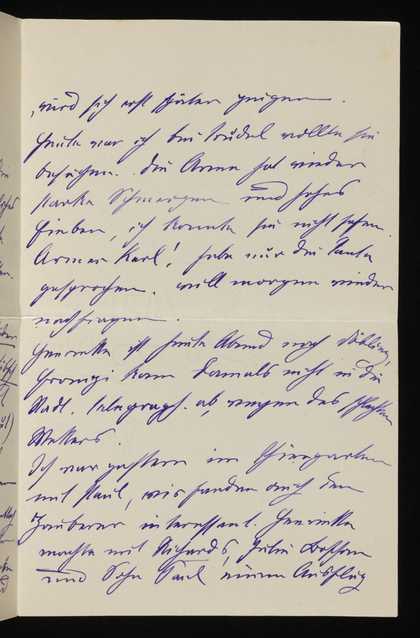 wird sich erst später zeigen.
Heute war ich bei Trudel wollte sie
besuchen. Die Arme hat wieder
starke Schmerzen und hohes
Fieber, ich konnte sie nicht sehen.
Armer Karl! habe nur die Tante
gesprochen. will morgen wieder
nachfragen.
Henriette ist heute Abend nach Döbling,
kam damals nicht in die
Stadt. telegraph. ab, wegen des schlechten
Wetters.
Ich war gestern im Thiergarten
mit Paul, wir fanden auch den
Zauberer interessant. Henriette
machte mit Richards, Julie
und Sohn Paul einen Ausflug